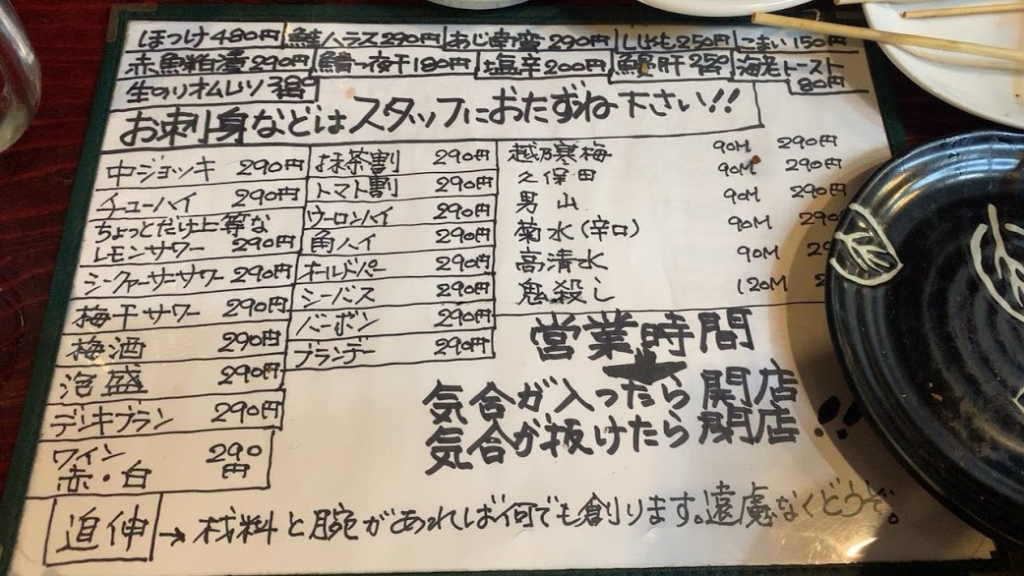 ほっけ 480円 鮭ハラス 290円 あじ南蛮 290円 ししゃも 250円 こまい 150円
赤魚粕漬 290円 鯖一夜干 180円 塩辛 200円 鮟肝 290 海老トースト 80円
生のりオムレツ
お刺身などはスタッフにおたずね下さい!!
中ジョッキ 290円
チューハイ 290円
ちょっとだけ上等な
レモンサワー 290円
シークァーサーサワー 290円
梅干サワー 290円
梅酒 290円
泡盛 290円
デンキブラン 290円
ワイン
赤・白 290円
抹茶割 290円
トマト割 290円
ウーロンハイ 290円
角ハイ 290円
オールドパー 290円
シーバス 290円
バーボン 290円
ブランデー 290円
越乃寒梅 90M 290円
久保田 90M 290円
男山 90M 290円
菊水(辛口) 90M 290
高清水 90M 29
鬼殺し 120M 2
営業時間
気合が入ったら開店
気合が抜けたら閉店!!
追伸 → 材料と腕があれば何でも創ります。遠慮なくどうぞ。